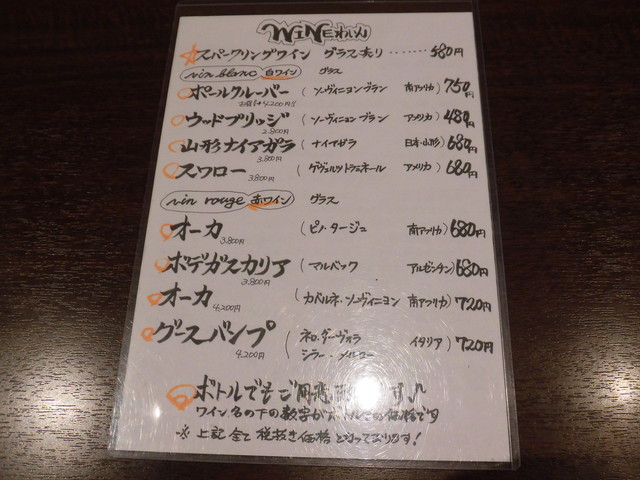 WINE わいん
☆スパークリングワイン グラス売り ‥‥‥ 580円
vin blanc 白ワイン グラス
ポールクルーバー (ソーヴィニヨンブラン 南アフリカ) 750円
4,200円!!
ウッドブリッジ (ソーヴィニヨンブラン アメリカ) 480円
2.800円
山形ナイアガラ (ナイアガラ 日本・山形) 680円
3.800円
スワロー (ゲヴュルツトラミネール アメリカ) 680円
3.800円
vin rouge 赤ワイン グラス
オーカ (ピノ・タージュ 南アフリカ) 680円
3.800円
ボデガスカリア (マルベック アルゼンチン) 680円
3.800円
オーカ (カベルネ・ソーヴィニヨン 南アフリカ) 720円
4,200円
グースバンプ (ネロ・ダーヴォラ イタリア) 720円
4,200円 シラー・メルロー
ボトルでもご用意 ます♪
ワイン名の下の数字がボトルでの価格です
※上記全て税抜き価格となっております!